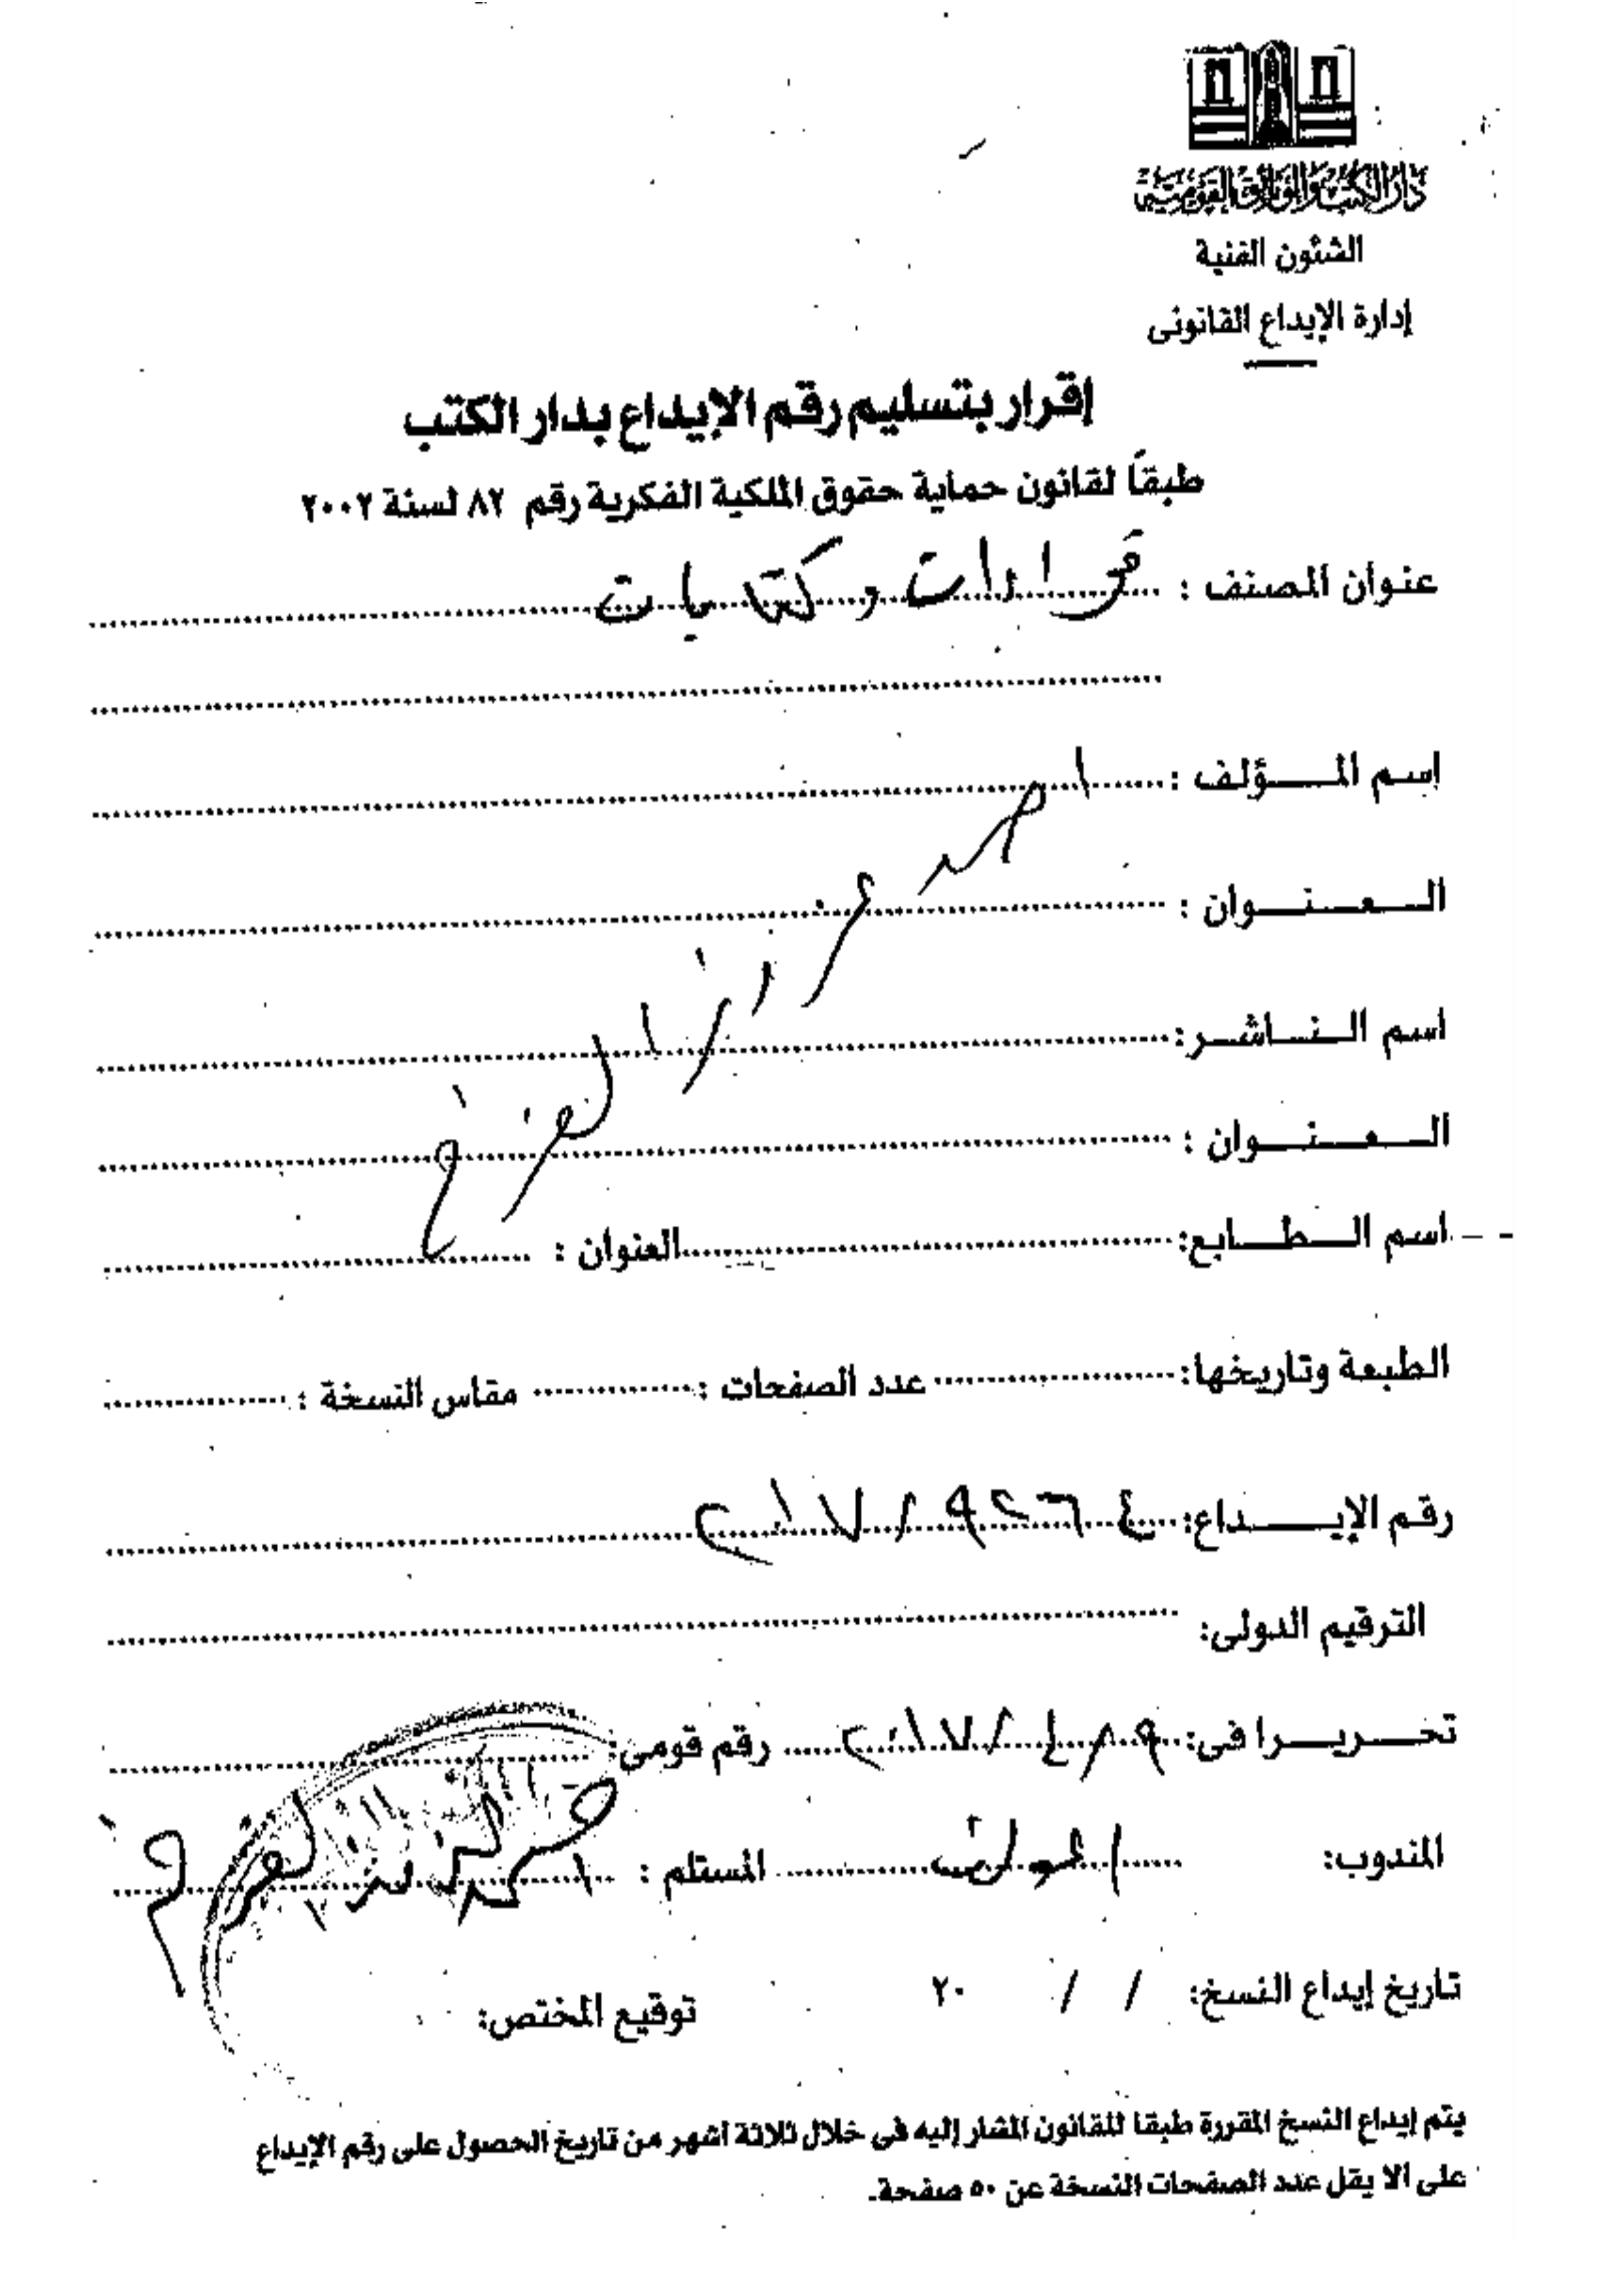 دار الكتب والوثائق القومية
الشئون الفنية
إدارة الإيداع القانونى
إقرار بتسليم رقم الإيداع بدار الكتب
طبقاً لقانون حماية حقوق الملكية الفكرية رقم ٨٢ لسنة ٢٠٠٢
عنوان المصنف : قراءات وكتابات
إسم المؤلف : احمد
العنوان :
اسم الناشر :
العنوان :
اسم الطابع : العنوان :
الطبعة وتاريخها : عدد الصفحات : مقاس النسخة :
رقم الإيداع : ٩٢٦٤ / ٢٠١٧
الترقيم الدولى :
تحريرا فى : ٩ / ٤ / ٢٠١٧ رقم قومى :
المندوب : المستلم :
تاريخ إيداع النسخ : / / ٢٠ توقيع المختص :
يتم إيداع النسخ المقررة طبقا للقانون المشار إليه فى خلال ثلاثة أشهر من تاريخ الحصول على رقم الإيداع
على ألا يقل عدد الصفحات النسخة عن ٥٠ صفحة.